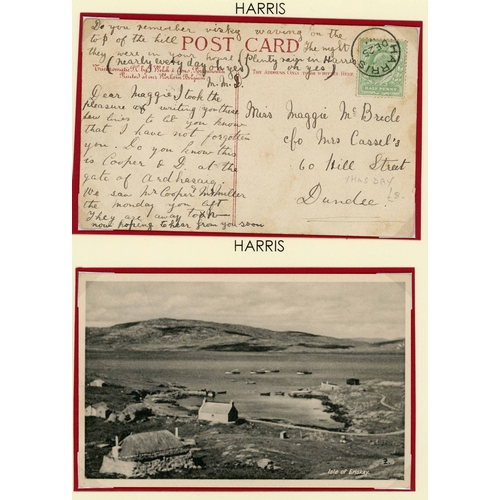 HARRIS
Do you remember visky waving on the
top of the hill
POST CARD
The night
they were in your house (plenty says in Harris
(nearly every day oh yes) oh yes)
THE ADDRESS ONLY TO BE WRITTEN HERE
Printed at our Works in Belgium
M. M. D.
HARRIS
DE 25
HALF PENNY
Dear Maggie I took the
pleasure of writing you these
few lines to let you know
that I have not forgotten
you. Do you know this
is Cooper & D. at the
gate of Ardhasaig
We saw Mr Cooper & Mr Miller
the monday you left
They are away to
now hoping to hear from you soon
Miss Maggie Mc Bride
c/o Mrs Cassel's
60 Hill Street
Dundee
XMAS DAY
£8
HARRIS
Isle of Ensay.